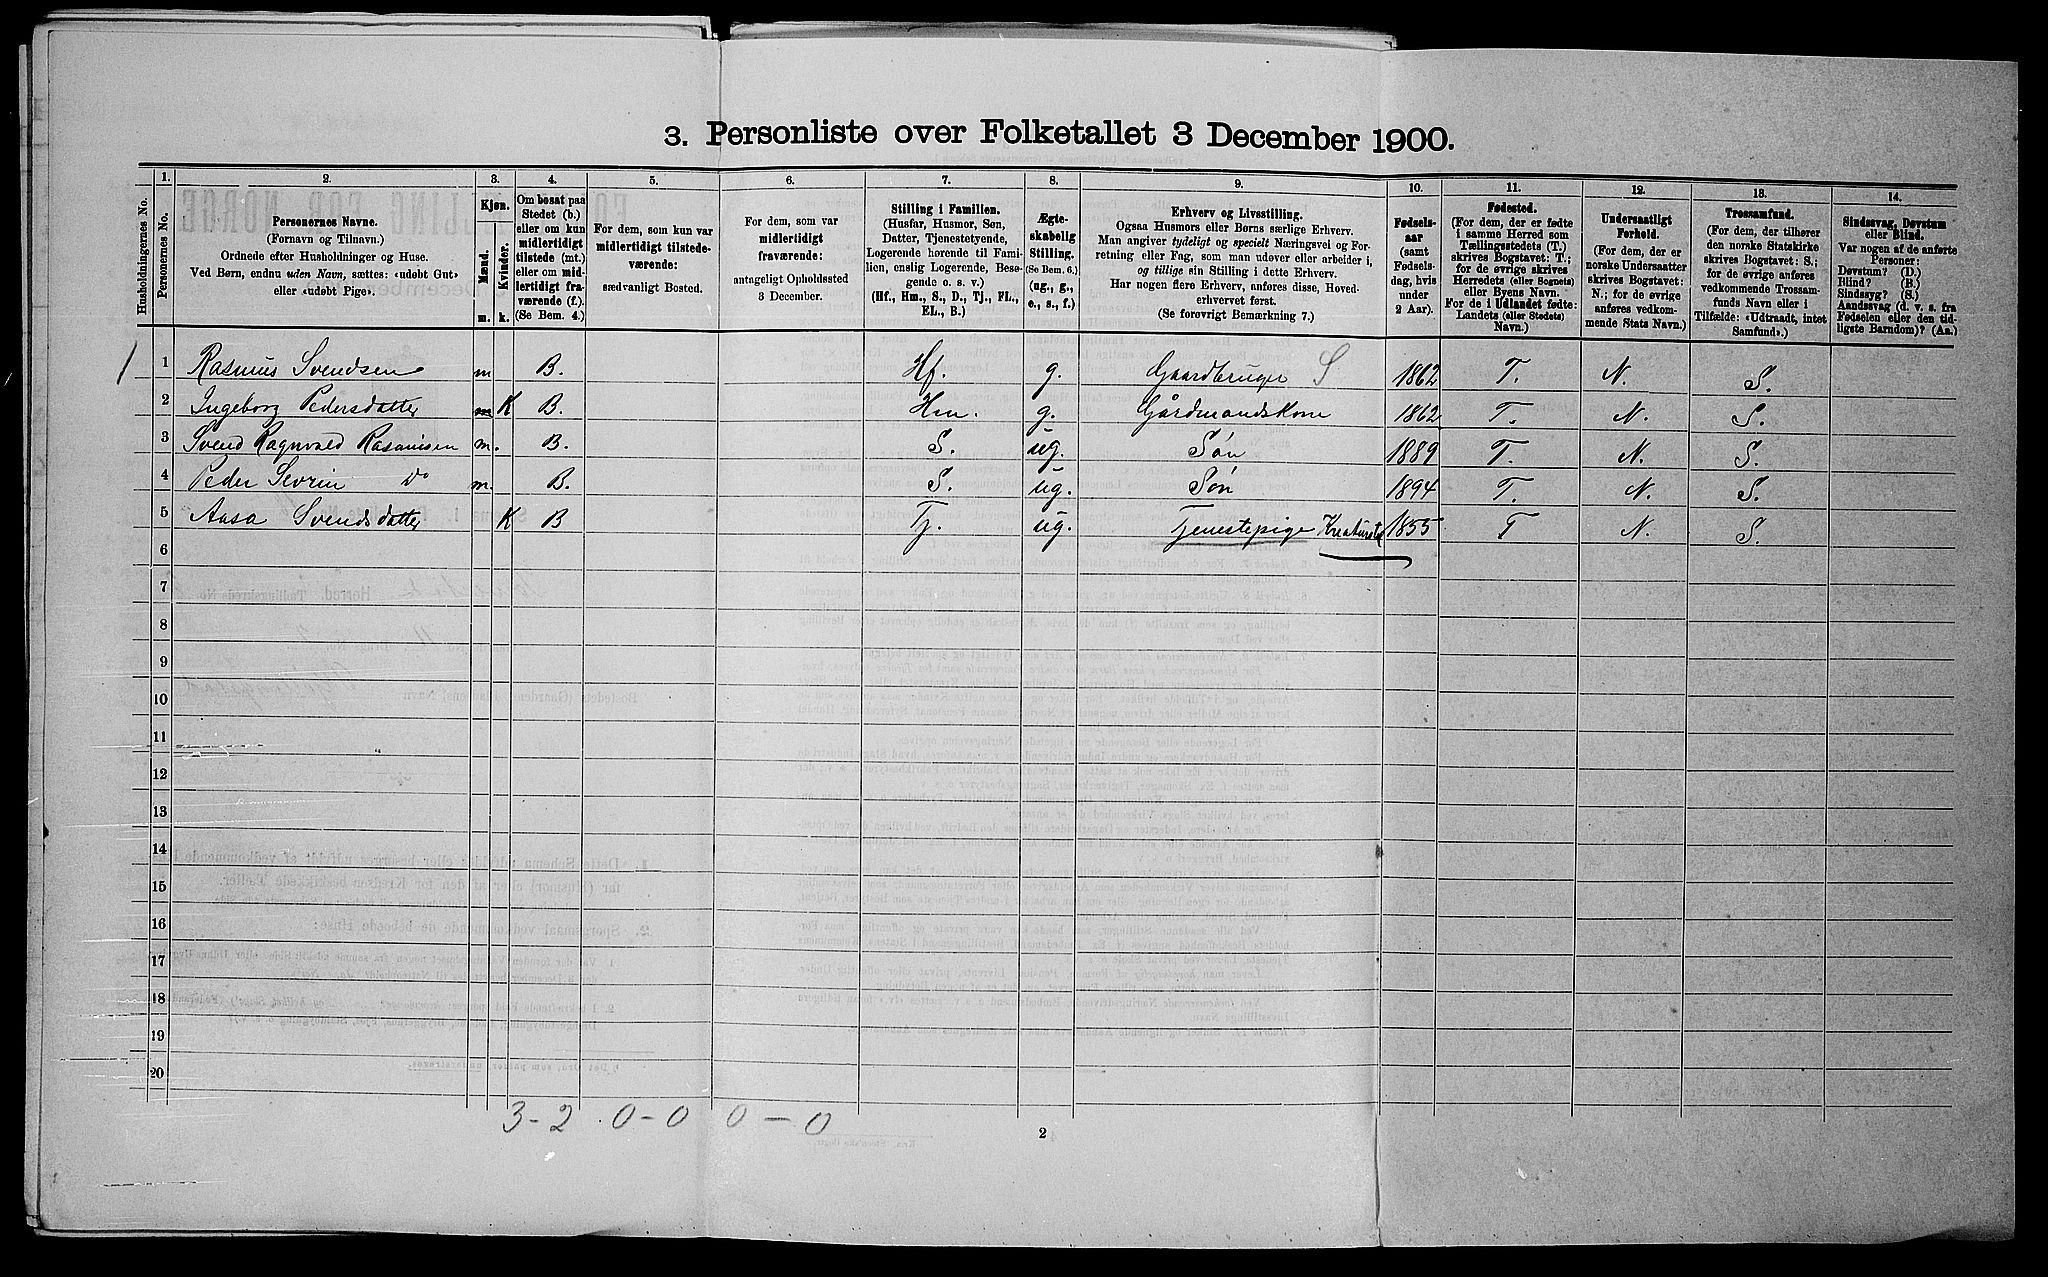 3. Personliste over Folketallet 3 December 1900.
1. 2. 3. 4. 5. 6. 7. 8. 9. 10. 11. 12. 13. 14.
Husholdningernes No.
Personernes No.
Personernes Navne.
(Fornavn og Tilnavn.)
Ordnede efter Husholdninger og Huse.
Ved Børn, endnu uden Navn, sættes: «udøbt Gut»
eller «udøbt Pige».
Kjøn.
Mænd.
Kvinder.
m. k.
Om bosat paa
Stedet (b.)
eller om kun
midlertidigt
tilstede (mt.)
eller om mid-
lertidigt fra-
værende (f.).
(Se Bem. 4.)
For dem, som kun var
midlertidigt tilstede-
værende:
sædvanligt Bosted.
For dem, som var
midlertidigt
fraværende:
antageligt Opholdssted
3 December.
Stilling i Familien.
(Husfar, Husmor, Søn,
Datter, Tjenestetyende,
Logerende hørende til Fami-
lien, enslig Logerende, Besø-
gende o. s. v.)
(Hf., Hm., S., D., Tj., FL.,
EL., B.)
Ægte-
skabelig
Stilling.
(Se Bem. 6.)
(ug., g.,
e., s., f.)
Erhverv og Livsstilling.
Ogsaa Husmors eller Børns særlige Erhverv.
Man angiver tydeligt og specielt Næringsvei og For-
retning eller Fag, som man udøver eller arbeider i,
og tillige sin Stilling i dette Erhverv.
Har nogen flere Erhverv, anføres disse, Hoved-
erhvervet først.
(Se forøvrigt Bemærkning 7.)
Fødsels-
aar
(samt
Fødsels-
dag, hvis
under
2 Aar).
Fødested.
(For dem, der er fødte
i samme Herred som
Tællingsstedets (T.)
skrives Bogstavet: T.;
for de øvrige skrives
Herredets (eller Sognets)
eller Byens Navn.
For de i Udlandet fødte:
Landets (eller Stedets)
Navn.)
Undersaatligt
Forhold.
(For dem, der er
norske Undersaatter
skrives Bogstavet:
N.; for de øvrige
anføres vedkom-
mende Stats Navn.)
Trossamfund.
(For dem, der tilhører
den norske Statskirke
skrives Bogstavet: S.;
for de øvrige anføres
vedkommende Trossam-
funds Navn eller i
Tilfælde: «Udtraadt, intet
Samfund».)
Sindssvag, Døvstum
eller Blind.
Var nogen af de anførte
Personer:
Døvstum? (D.)
Blind? (B.)
Sindssyg? (S.)
Aandssvag (d. v. s. fra
Fødselen eller den tid-
ligste Barndom)? (Aa.)
1 1 Rasmus Svendsen m B. Hf. g. Gaardbruger S 1862 T. N. S.
2 Ingeborg Pedersdatter m K B. Hm. g. Gårdmandskone 1862 T. N. S.
3 Svend Ragnvald Rasmusen m. B. S. ug. Søn 1889 T. N. S.
4 Peder Sevrin Do m. B. S. ug. Søn 1894 T. N. S.
5 Aasa Svendsdatter K B Tj. ug. Tjenestepige Kreaturstel 1855 T N. S.
6
7
8
9
10
11
12
13
14
15
16
17
18
19
20
3-2 0-0 0-0
2